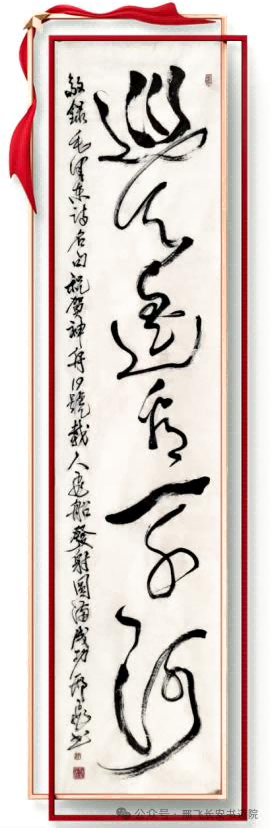 巡天遥看一千河
敬錄毛澤東詩名句祝賀神舟19號載人飛船發射圓滿成功邢飛書
公众号 · 邢飞长安书院